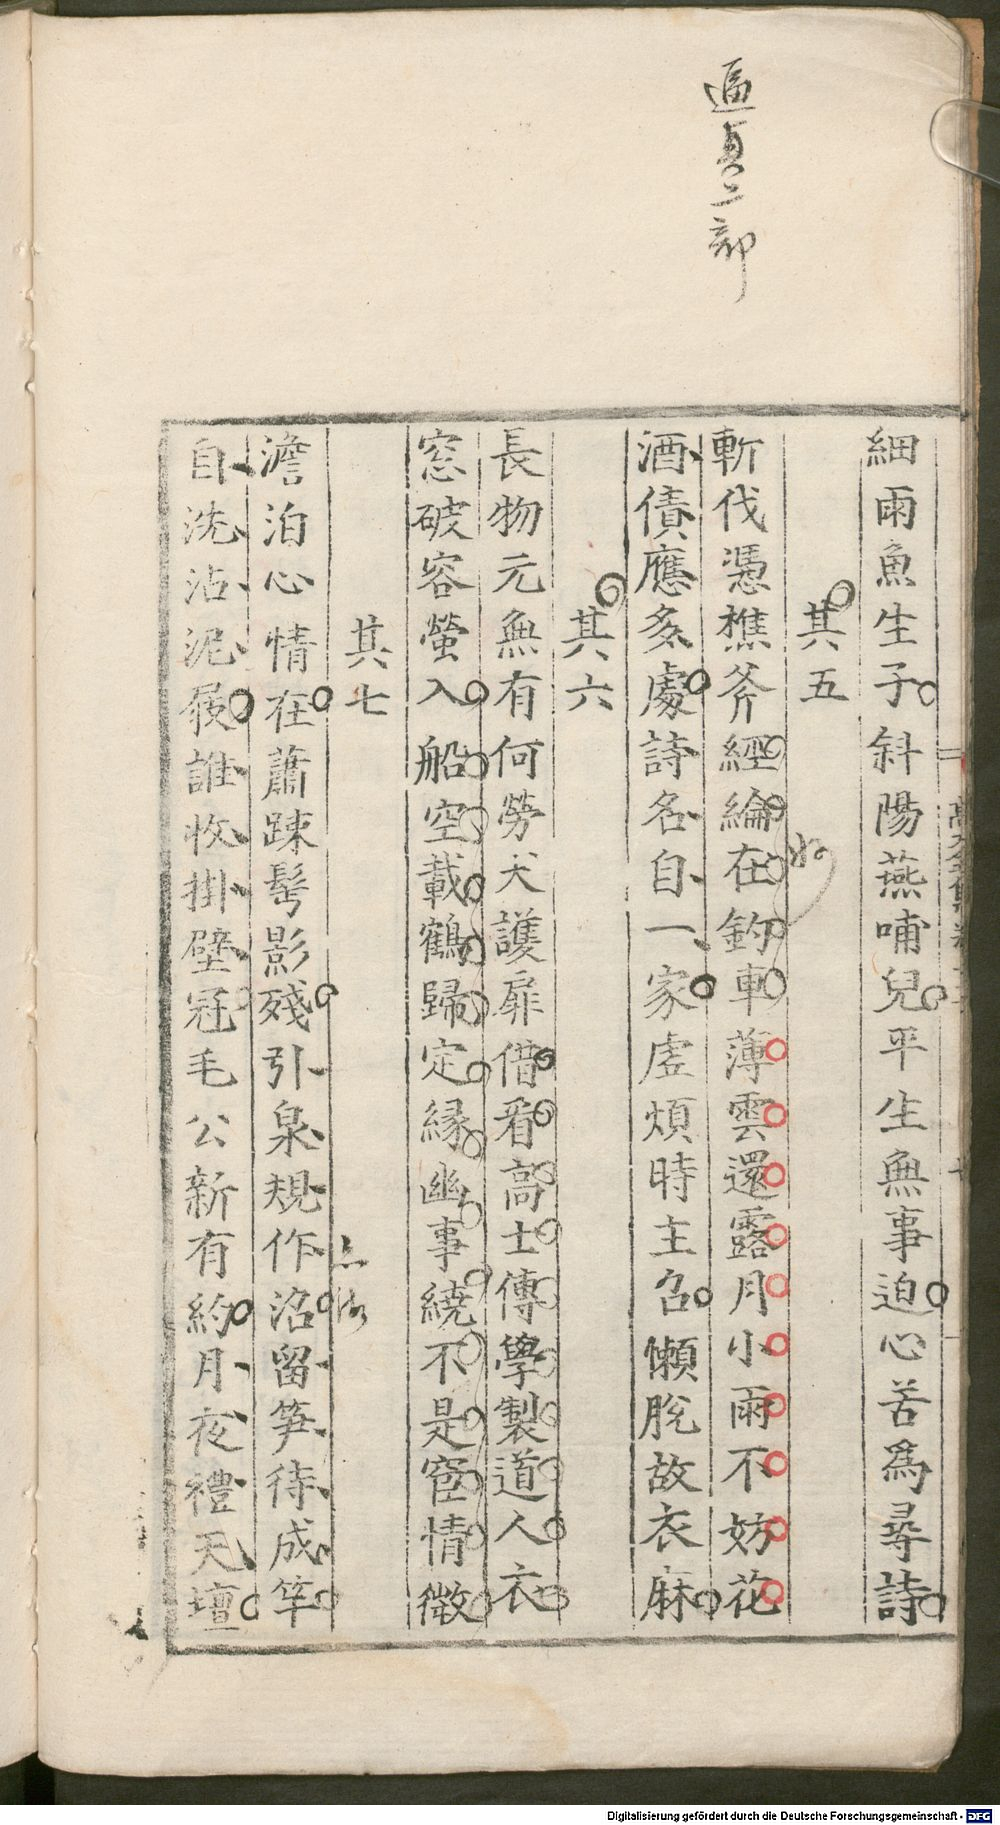 逼真二部
細雨魚生子斜陽燕哺兒平生無事迫心苦爲尋詩
其五
斬伐憑樵斧經綸在釣車薄雲還露月小雨不妨花
酒債應多處詩名自一家虗煩時主召懶脫故衣麻
其六
長物元無有何勞犬護扉借看高士傳學製道人衣
窓破容螢入船空載鶴歸定緣幽事繞不是宦情微
其七
澹泊心情在蕭踈髩影殘引泉規作沼留笋待成竿
自洗沾泥屐誰收掛壁冠毛公新有約月夜禮天壇
Digitalisierung gefördert durch die Deutsche Forschungsgemeinschaft - DFG